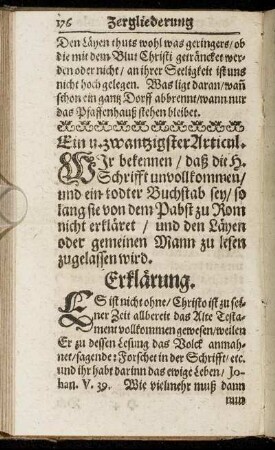 176 Zergliederung
Den Läyen thuts wohl was geringers / ob
die mit dem Blut Christi geträncket wer-
den oder nicht / an ihrer Seeligkeit ist uns
nicht hoch gelegen. Was ligt daran / wañ
schon ein gantz Dorff abbrennt / wann nur
das Pfaffenhauß stehen bleibet.
Ein u. zwantzigster Articul.
WJr bekennen / daß die H.
Schrifft unvollkommen /
und ein todter Buchstab sey / so
lang sie von dem Pabst zu Rom
nicht erkläret / und den Läyen
oder gemeinen Mann zu lesen
zugelassen wird.
Erklärung.
ES ist nicht ohne / Christo ist zu sei-
ner Zeit allbereit das Alte Testa-
ment vollkommen gewesen / weilen
Er zu dessen Lesung das Volck anmah-
net / sagende: Forschet in der Schrifft / etc.
und ihr habt darinn das ewige Leben / Jo-
han. V. 39. Wie vielmehr muß dann
nun